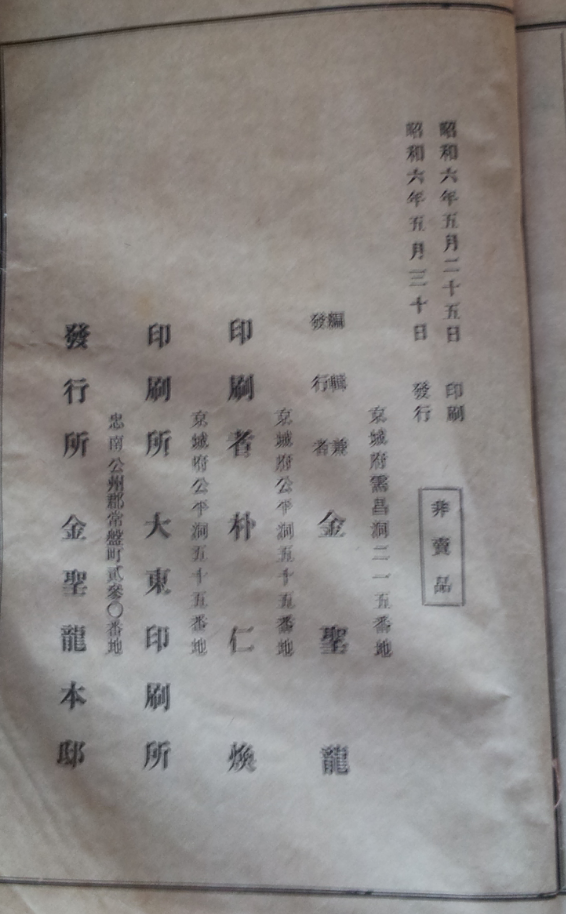 昭和六年五月二十五日 印刷
昭和六年五月三十日 發行
非賣品
京城府需昌洞二一五番地
編輯兼
發行者 金聖龍
京城府公平洞五十五番地
印刷者 朴仁煥
京城府公平洞五十五番地
印刷所 大東印刷所
忠南公州郡常盤町貳參〇番地
發行所 金聖龍本邸